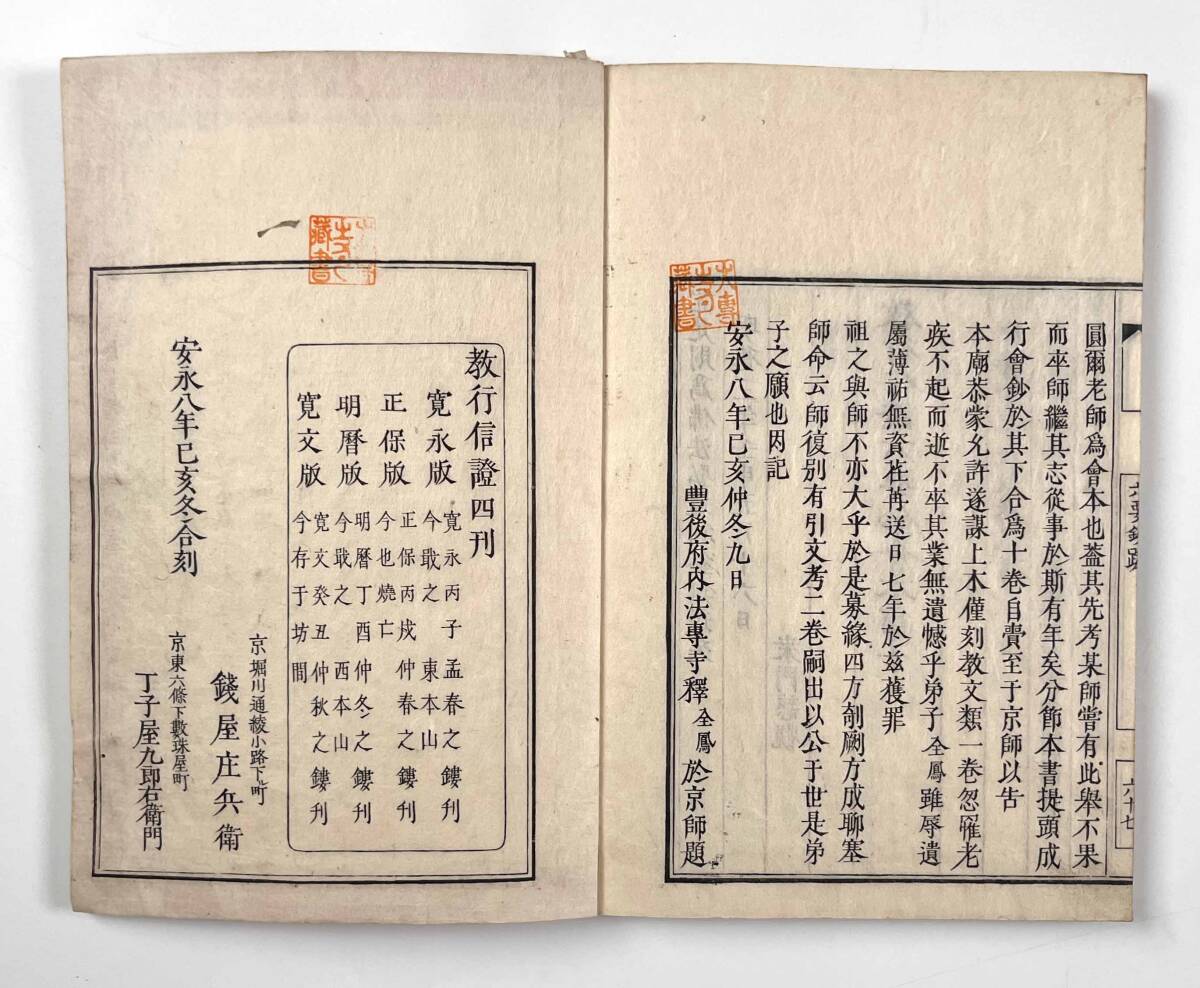 圓爾老師爲會本也蓋其先考某師嘗有此舉不果
而卒師繼其志從事於斯有年矣分節本書提頭成
行會鈔於其下合爲十巻自賷至于京師以告
本廟恭蒙允許遂謀上木僅刻教文類一巻忽罹老
疾不起而逝不卒其業無遺憾乎弟子全鳳雖辱遺
屬薄祐無資荏苒送日七年於兹獲罪
祖之與師不亦大乎於是募緣四方剞劂方成聊塞
師命云師復別有引文考二巻嗣出以公于世是弟
子之願也因記
安永八年己亥仲冬九日
豐後府內法專寺釋全鳳於京師題
六要鈔跋
六十七
一
教行信證四刊
寬永版 寬永丙子孟春之鏤刊 今戢之東本山
正保版 正保丙戌仲春之鏤刊 今也燒亡
明曆版 明曆丁酉仲冬之鏤刊 今戢之西本山
寬文版 寬文癸丑仲秋之鏤刊 今存于坊間
安永八年己亥冬合刻
京堀川通綾小路下ル町
錢屋庄兵衛
京東六條下數珠屋町
丁子屋九郎右衛門